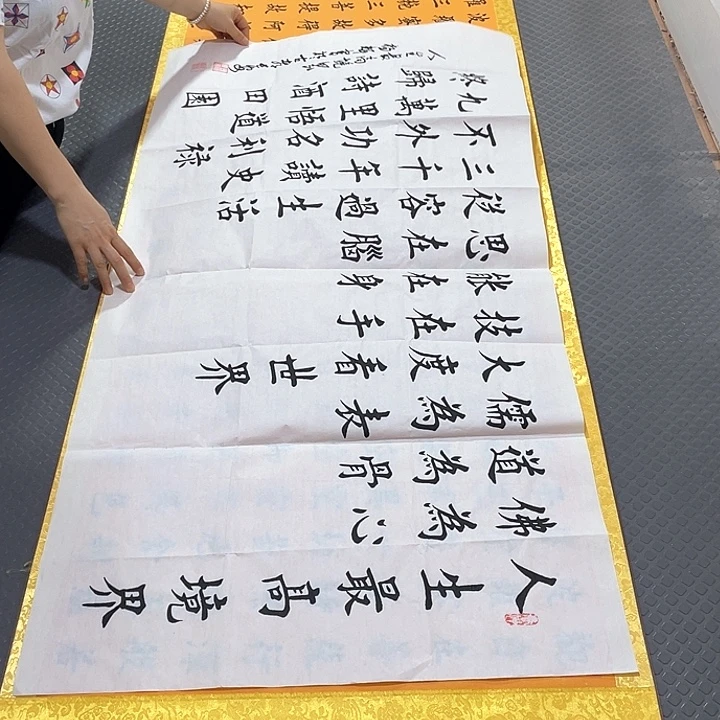 人生最高境界
佛為心
道為骨
儒為表
大度看世界
技在手
能在身
思在腦
從容過生活
三千年讀史
不外功名利禄
九萬里悟道
終歸詩酒田園